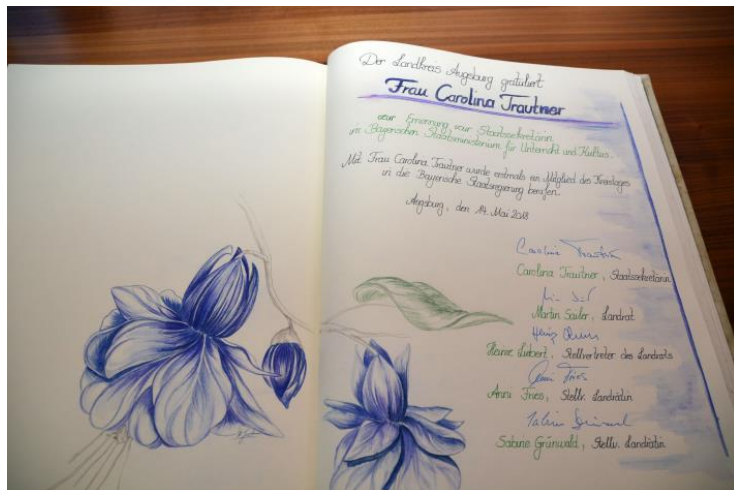 Der Landkreis Augsburg gratuliert
Frau Carolina Trautner
zur Ernennung zur Staatssekretärin
im Bayerischen Staatsministerium für Unterricht und Kultus.
Mit Frau Carolina Trautner wurde erstmals ein Mitglied des Kreistages
in die Bayerische Staatsregierung berufen.
Augsburg, den 14. Mai 2018
Carolina Trautner
Carolina Trautner, Staatssekretärin
Martin Sailer, Landrat
Heinz Liebert, Stellvertreter des Landrats
Anni Fries
Anni Fries, Stellv. Landrätin
Sabine Grünwald, Stellv. Landrätin